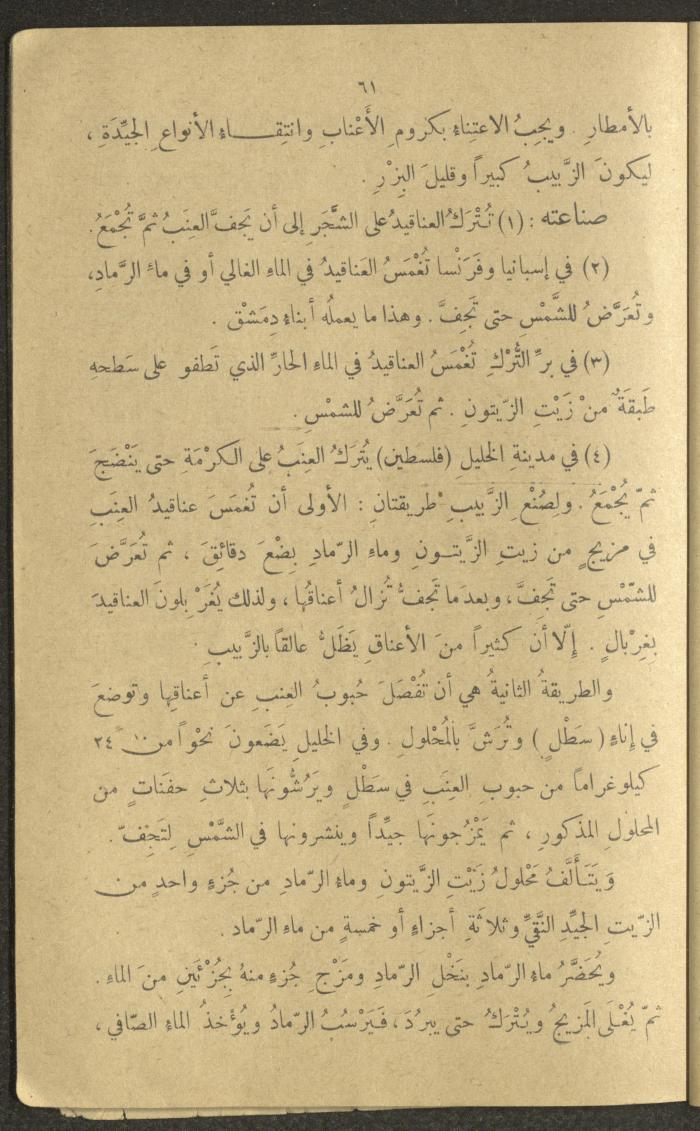 ٦١
بالأمطارِ . ويجبُ الاعتِناءُ بكرومِ الأَعْنابِ وانتِقـــاءِ الأنواعِ الجيِّدَةِ ،
ليكونَ الزَّبيبُ كبيراً وقليلَ البِزْرِ .
صناعته : (١) تُتْرَكُ العناقيدُ على الشَّجَرِ إلى أن يَجفَّ العِنَبُ ثمَّ تُجْمَعُ.
(٢) في إسبانيا وفَرَنْسا تُغْمَسُ العَناقيدُ في الماءِ الغالي أو في ماءِ الرَّمادِ،
وتُعَرَّضُ للشَّمْس حتى تَجِفَّ . وهذا ما يعملُه أبناء دِمَشْق .
(٣) في برِّ التُّرْكِ تُغْمَسُ العناقيدُ في الماءِ الحارِّ الذي تَطفو على سَطحهِ
طَبقَةٌ منْ زَيْتِ الزّيتونِ . ثم تُعَرَّضُ للشمْسِ .
(٤) في مدينةِ الخليلِ (فلسطين) يُتْرَكُ العِنَبُ على الكرْمَةِ حتى يَنْضَجَ
ثمّ يُجْمَعُ . ولِصُنْعِ الزَّبيبِ طريقتانِ : الأولى أن تُغمَسَ عناقيدُ العِنَبِ
في مزيجٍ من زيتِ الزَّيتــونِ وماءِ الرّمادِ بِضْعَ دقائِقَ ، ثم تُعَرَّضَ
للشّمْسِ حتى تَجِفَّ ، وبعدَما تَجفُّ تُزالُ أعناقُها ، ولذلك يُغَرْبِلونَ العناقيدَ
بِغِرْبالٍ . إلّا أن كثيراً منَ الأعناقِ يَظَلُّ عالقاً بالزَّبيبِ .
والطريقةُ الثانيةُ هي أن تُفْصَلَ حُبوبُ العِنبِ عن أعناقِها وتوضعَ
في إناءٍ ( سَطْلٍ ) وتُرَشَّ بالمُحْلولِ . وفي الخليلِ يَضَعونَ نحْواً من ١٠ - ٢٤
كيلوغراماً من حبوبِ العِنَبِ في سَطْلٍ ويَرُشُّونَها بثلاثِ حفَناتٍ من
المحلولِ المذكورِ ، ثم يَمْزُجونَها جيِّداً وينشرونها في الشَّمْسِ لِتَجِفّ .
وَيَتَأَلَّفُ مَحْلولُ زَيْتِ الزَّيتونِ وماءِ الرّمادِ من جُزءٍ واحدٍ من
الزّيتِ الجيِّدِ النَّقيِّ وثلاثَةِ أجزاءٍ أو خمسةٍ من ماءِ الرّماد .
ويُحَضَّرُ ماءِ الرّمادِ بنَخْلِ الرّمادِ ومَزْجِ جُزءٍ منهُ بجُزْئَينِ منَ الماءِ .
ثمّ يُغْلَى المَزيجُ ويُتْرَكُ حتى يبرُدَ ، فَيَرْسُبُ الرّمادُ ويُؤْخَذُ الماءِ الصّافي ،